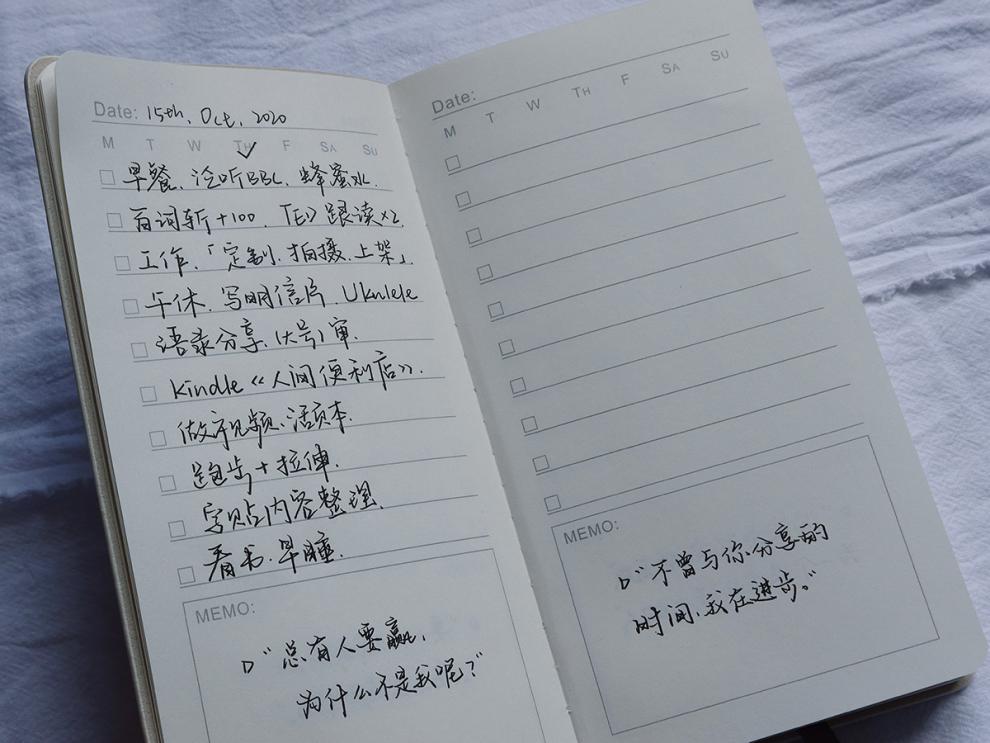 Date: 15th, Oct, 2020
M T W TH F SA SU
早餐、泛听BBC、蜂蜜水.
百词斩+100、TED跟读×2.
工作、「定制、拍摄、上架」.
午休、写明信片、Ukulele
语录分享、(大号)审.
Kindle《人间便利店》.
做视频、活页本.
跑步+拉伸.
字贴内容整理.
看书、早睡.
MEMO:
"总有人要赢,
为什么不是我呢?"
Date:
M T W TH F SA SU
MEMO:
"不曾与你分享的
时间,我在进步。"